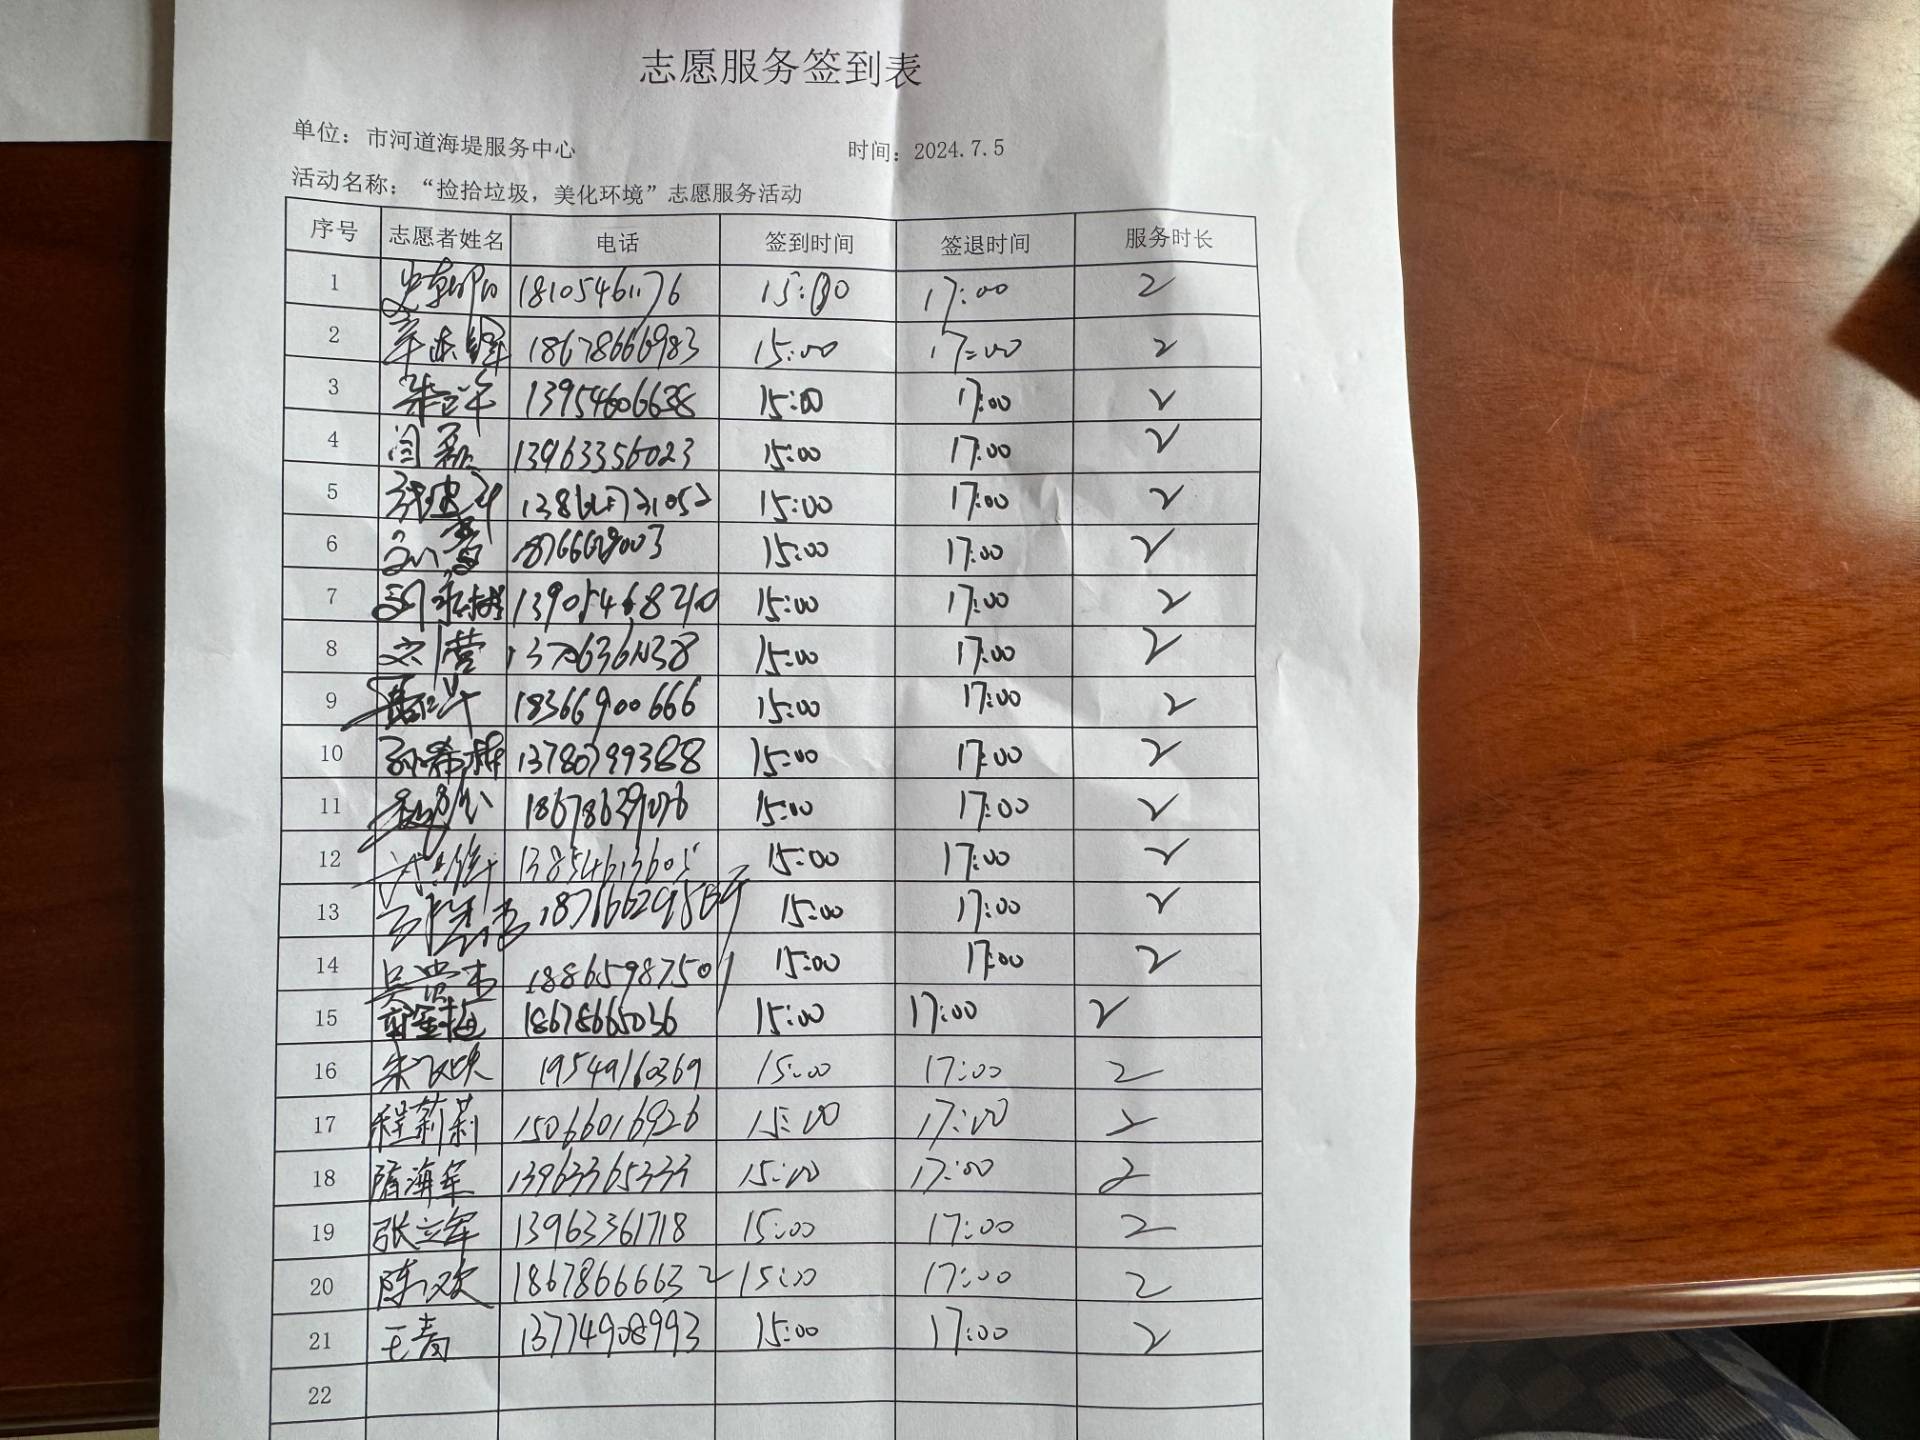 志愿服务签到表
单位：市河道海堤服务中心 时间：2024.7.5
活动名称：“捡拾垃圾，美化环境”志愿服务活动
序号 志愿者姓名 电话 签到时间 签退时间 服务时长
1 15:00 17:00 2
2 18678666983 15:00 17:00 2
3 13954606638 15:00 17:00 2
4 闫 13963356023 15:00 17:00 2
5 15:00 17:00 2
6 15:00 17:00 2
7 13905468210 15:00 17:00 2
8 刘营 15:00 17:00 2
9 18366900666 15:00 17:00 2
10 孙希梅 13780799388 15:00 17:00 2
11 18678639076 15:00 17:00 2
12 13854613605 15:00 17:00 2
13 15:00 17:00 2
14 18865987501 15:00 17:00 2
15 18678665036 15:00 17:00 2
16 19549160369 15:00 17:00 2
17 程莉莉 15066016926 15:00 17:00 2
18 隋海军 13963365333 15:00 17:00 2
19 张立军 13963361718 15:00 17:00 2
20 陈欢 18678666632 15:00 17:00 2
21 王青 13774908993 15:00 17:00 2
22